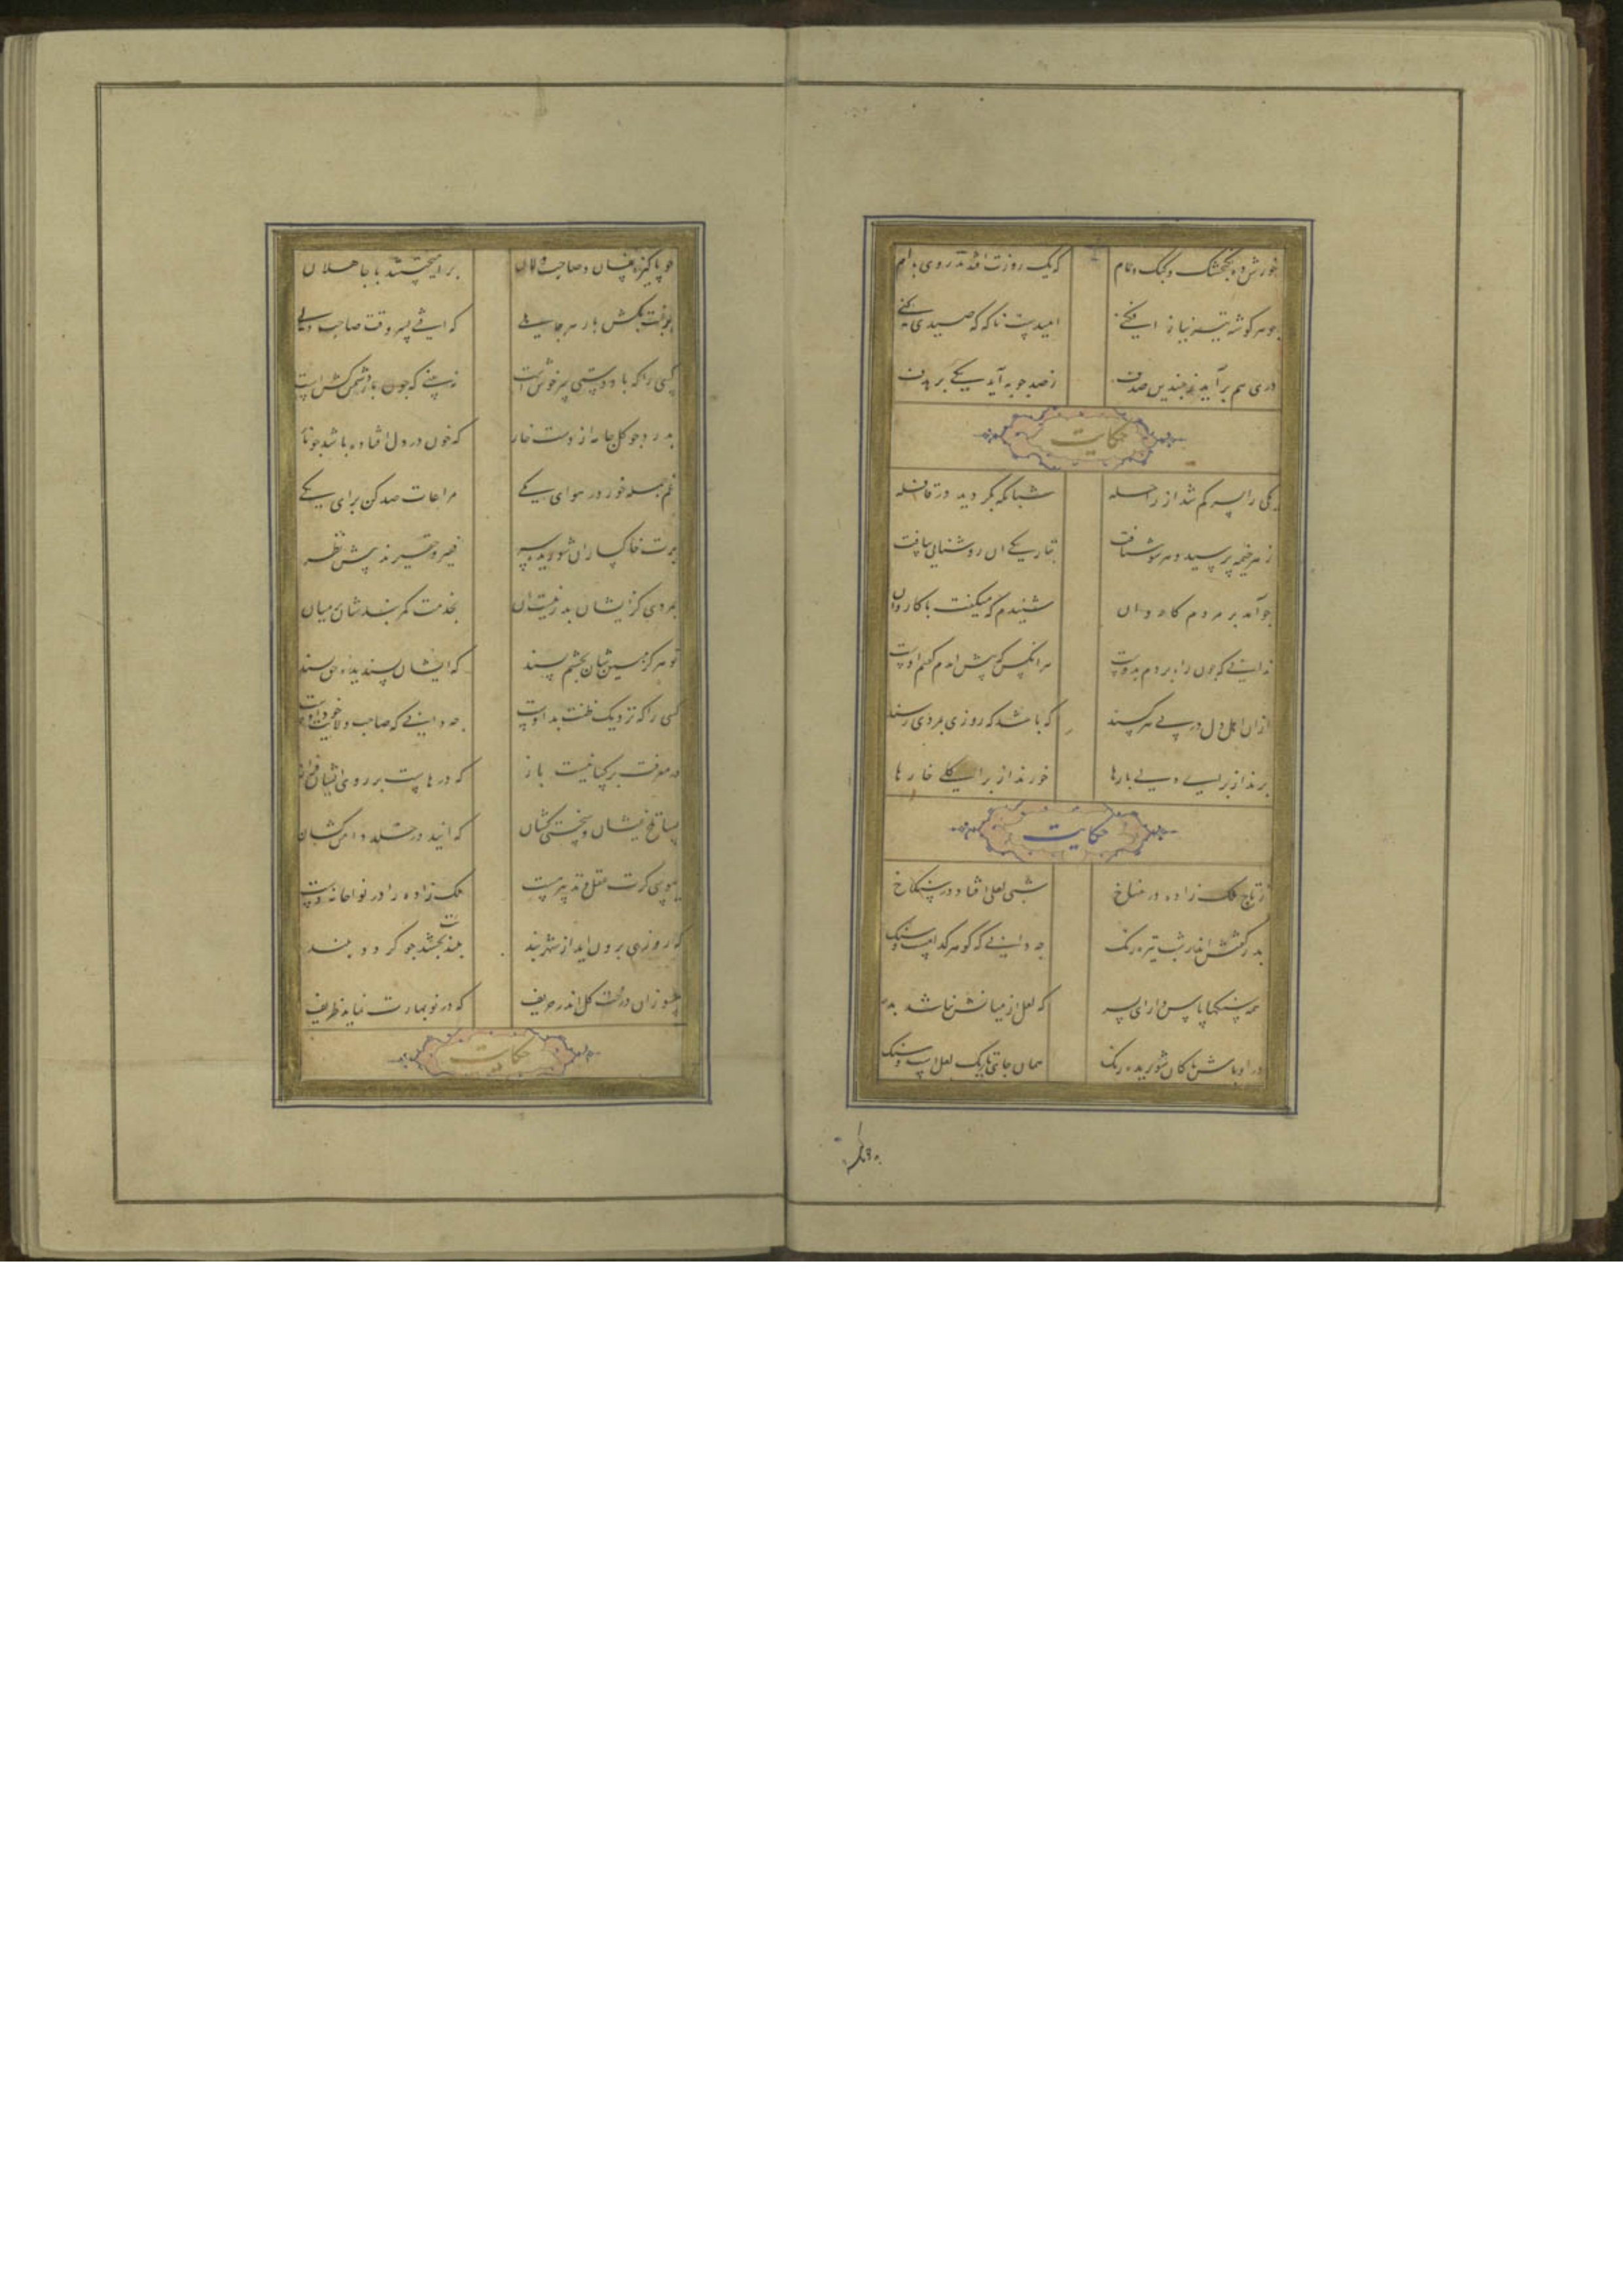 خورش ده بکنجشک و کبک و حمام
که یک روزت افتد تذروی بدام
چو هر گوشه تیر نیاز افکنی
امیدست ناکه که صیدی کنی
دری هم برآید ز چندین صدف
ز صد چوبه آید یکی بر هدف
حکایت
یکی را پسر کم شد از راحله
شبانکه بکردید در قافله
ز هر خیمه پرسید و هر سو شتافت
بتاریکی آن روشنایی بیافت
چو آمد بر مردم کاروان
شنیدم که میکفت با کاروان
ندانی که چون راه بردم بدوست
هر آنکس که پیش آمدم کفتم اوست
از آن اهل دل در پی هر کسند
که باشد که روزی بمردی رسند
برند از برای دلی بارها
خورند از برای کلی خارها
حکایت
ز تاج ملک زاده در مناخ
شبی لعلی افتاد در سنکلاخ
پدر کفتش اندر شب تیره رنک
چه دانی که کوهر کدامست و سنک
همه سنکها پاس دار ای پسر
که لعل از میانش نباشد بدر
در اوباش پاکان شوریده رنک
همان جای تاریک لعل است و سنک
چو پاکیزه نفسان و صاحب دلان
برامیختستند با جاهلان
برغبت بکش بار هر جاهلی
که افتی بسر وقت صاحب دلی
کسی را که با دوستی سر خوش است
نبینی که چون بار دشمن کش است
بدرد چو کل جامه از دست خار
که خون در دل افتاده باشد چو نار
غم جمله خور در هوای یکی
مراعات صد کن برای یکی
کرت خاک پایان شوریده سر
فقیر و حقیرند پیش نظر
بمردی کز ایشان بدر نیست آن
بخدمت کمر بندشان بر میان
تو هرکز مبین شان بچشم پسند
که ایشان پسندیده حق بسند
کسی را که نزدیک ظنت بد اوست
چه دانی که صاحب ولایت خود اوست
در معرفت بر کسانیست باز
که درهاست بر روی ایشان فراز
بسا تلخ عیشان و سختی کشان
که آیند در حله دامن کشان
ببوسی کرت عقل و تدبیر هست
ملک زاده را در نواخانه دست
که روزی برون آید از شهر بند
بلندیت بخشد چو کردد بلند
مسوزان درخت کل اندر خریف
که در نوبهارت نماید ظریف
حکایت